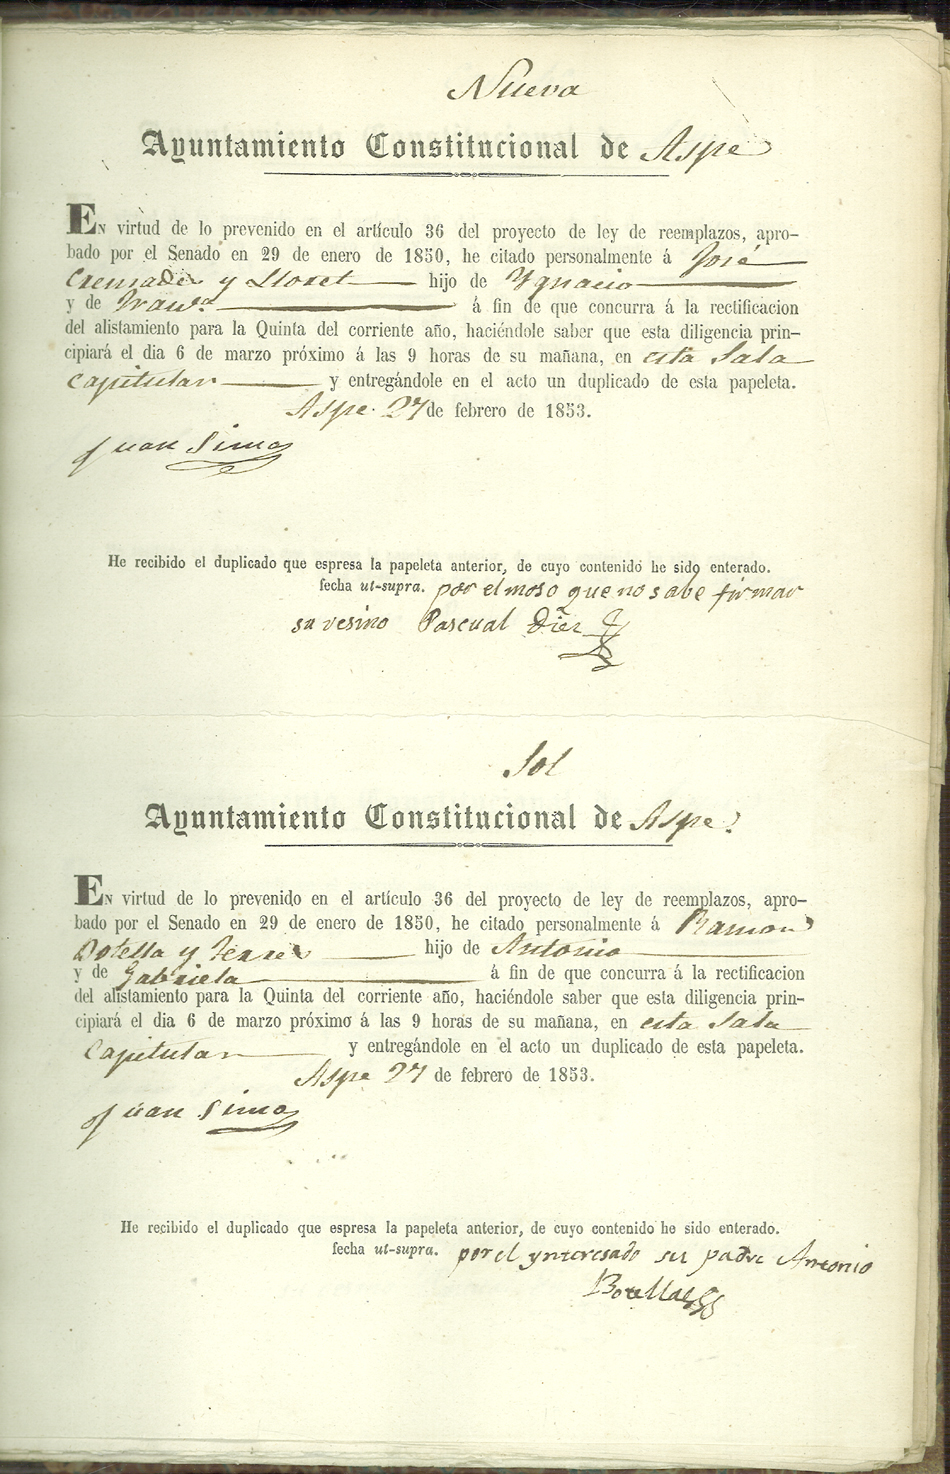 Nueva
Ayuntamiento Constitucional de Aspe
En virtud de lo prevenido en el artículo 36 del proyecto de ley de reemplazos, apro-
bado por el Senado en 29 de enero de 1850, he citado personalmente á José
Cremades y Lloret hijo de Ygnacio
y de Fran.ca á fin de que concurra á la rectificacion
del alistamiento para la Quinta del corriente año, haciéndole saber que esta diligencia prin-
cipiará el dia 6 de marzo próximo á las 9 horas de su mañana, en esta Sala
Capitular y entregándole en el acto un duplicado de esta papeleta.
Aspe 27 de febrero de 1853.
Juan Simo
He recibido el duplicado que espresa la papeleta anterior, de cuyo contenido he sido enterado.
fecha ut-supra. por el moso que no sabe firmar
su vesino Pascual Diez
Sol
Ayuntamiento Constitucional de Aspe.
En virtud de lo prevenido en el artículo 36 del proyecto de ley de reemplazos, apro-
bado por el Senado en 29 de enero de 1850, he citado personalmente á Ramon
Botella y hijo de Antonio
y de Gabriela á fin de que concurra á la rectificacion
del alistamiento para la Quinta del corriente año, haciéndole saber que esta diligencia prin-
cipiará el dia 6 de marzo próximo á las 9 horas de su mañana, en esta Sala
Capitular y entregándole en el acto un duplicado de esta papeleta.
Aspe 27 de febrero de 1853.
Juan Simo
He recibido el duplicado que espresa la papeleta anterior, de cuyo contenido he sido enterado.
fecha ut-supra. por el ynteresado su padre Antonio
Botella